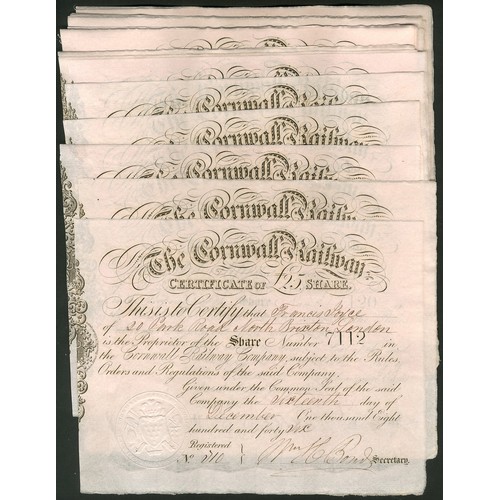 The Cornwall Railway
CERTIFICATE OF £25 SHARE.
This is to Certify that Francis Joyce
of 20 Park Road North Brixton London
is the Proprietor of the Share Number 7112 in
the Cornwall Railway Company, subject to the Rules,
Orders and Regulations of the said Company.
Given under the Common Seal of the said
Company the Sixteenth day of
December One thousand Eight
hundred and forty Six
Registered
No. 210 Wm H Bond Secretary.